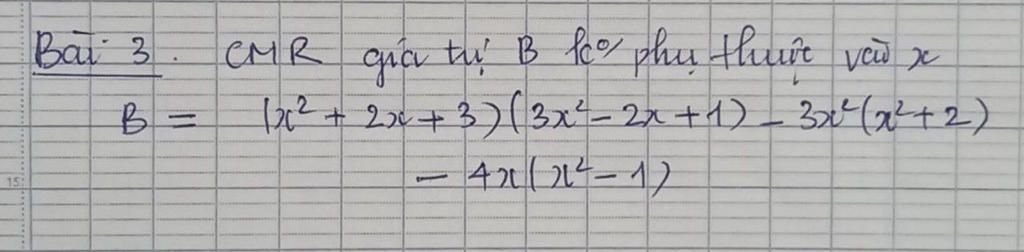 Bài 3. CMR giá trị B ko phụ thuộc vào x
B = (x² + 2x + 3)(3x² - 2x + 1) - 3x²(x² + 2)
- 4x(x² - 1)
15